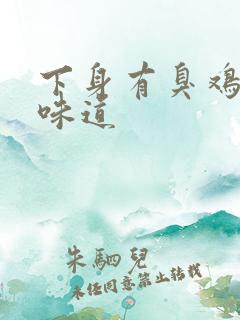 下身有臭鸡
味道
朱駟兒
未经同意禁止转载